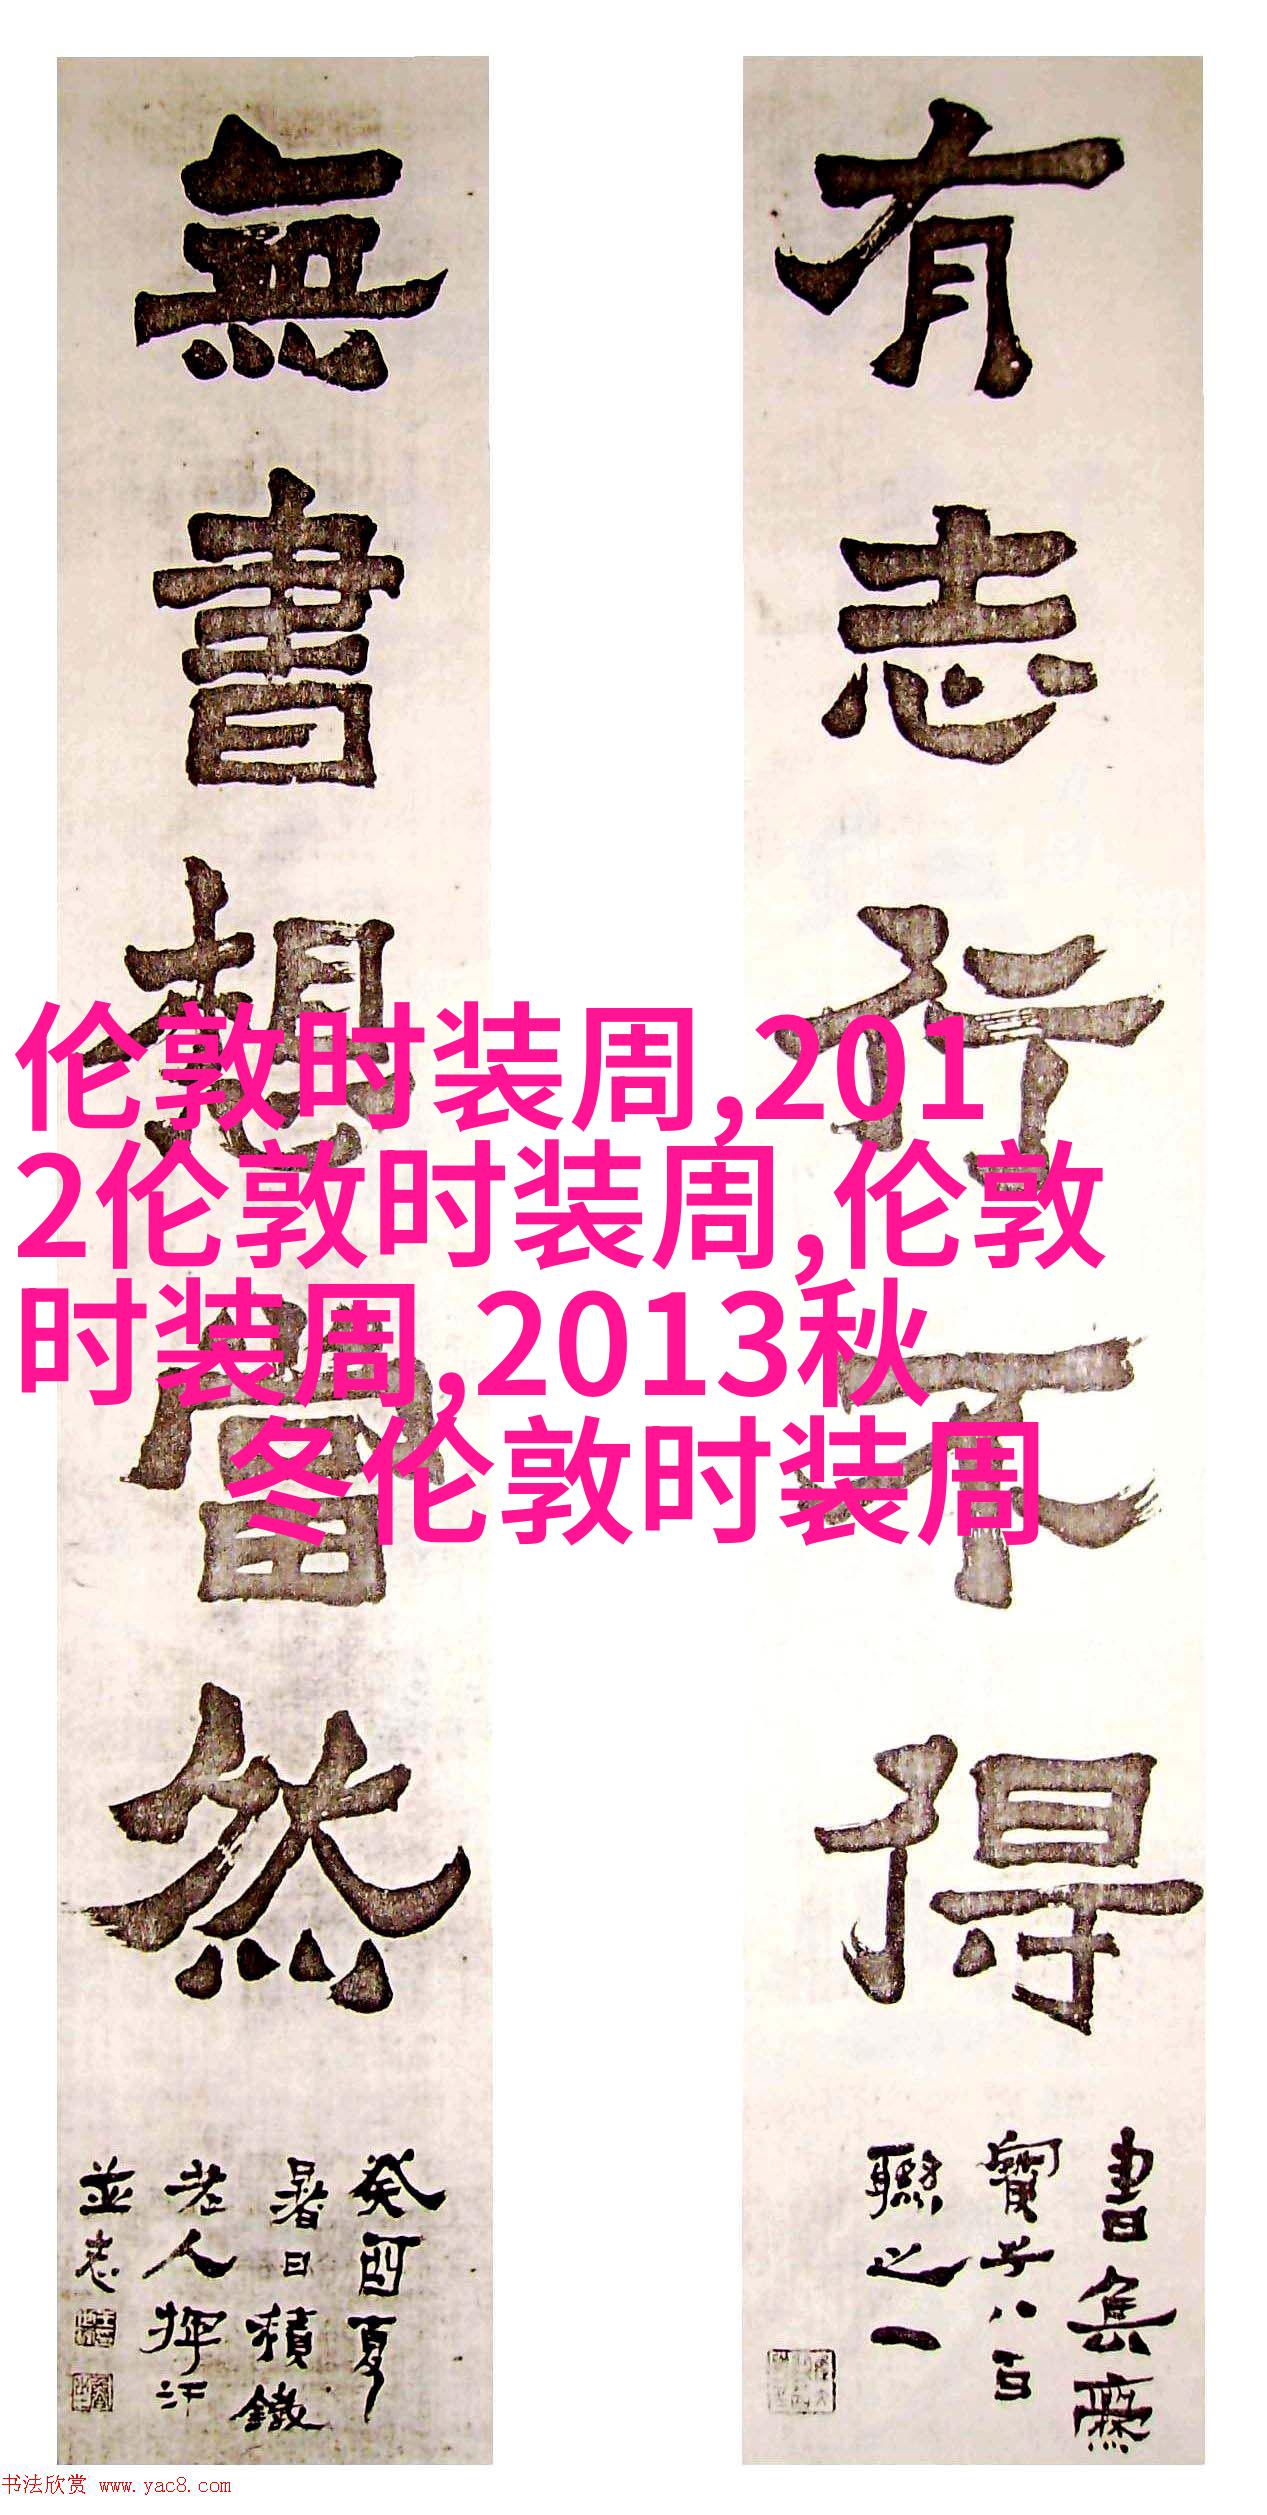 有志行不得
書集爨
寶子八百
聯之一
無書想當然
癸酉夏
暑日積鐵
老人揮汗
並志
伦敦时装周,201
2伦敦时装周,伦敦
时装周,2013秋
冬伦敦时装周
书法欣赏 www.yac8.com